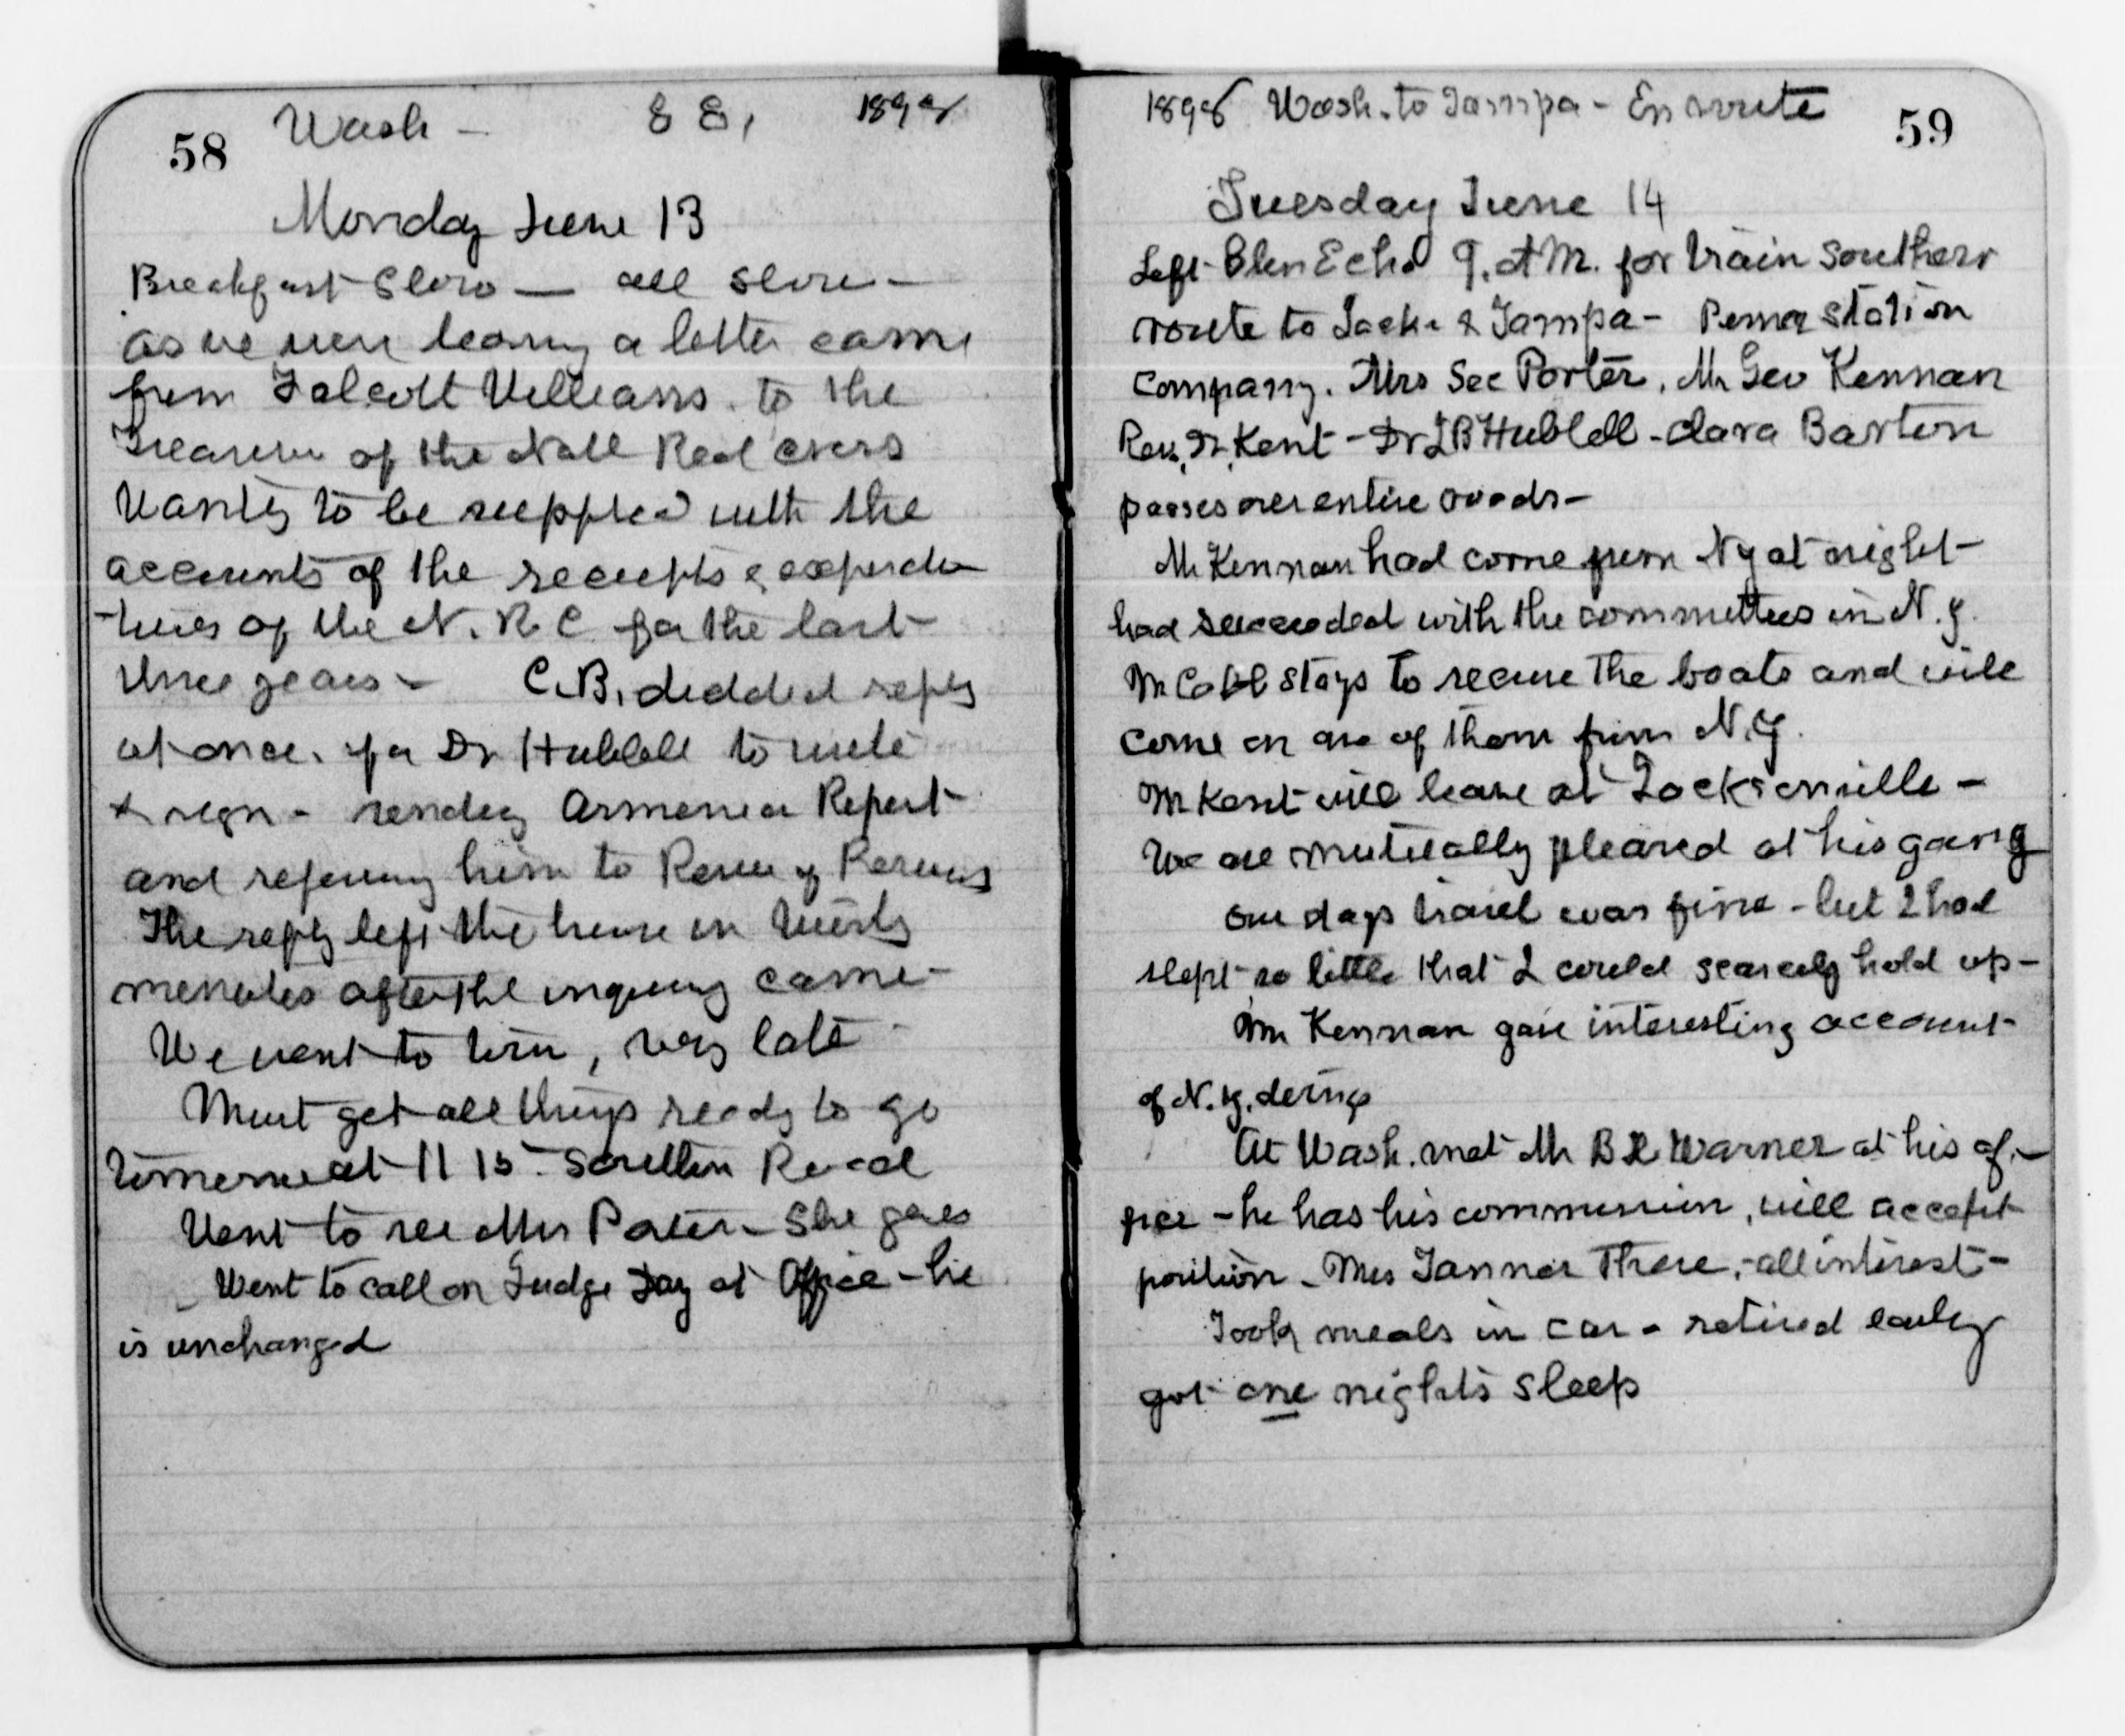 58
Wash - G E, 1898
Monday June 13
Breakfast Slow — all slow -
as we were leaving a letter came
from Talcott Williams. to the
Treasurer of the Natl Red cross
Wants to be supplied with the
accounts of the receipts & expendi
-tures of the N. R C for the last
three years - C.B. dictated reply
at once. for Dr Hubbell to write
& sign - sending Armenia Report
and referring him to Review of Reviews
The reply left the house in twenty
minutes after the inquiry came -
We went to town, very late
Must get all things ready to go
tomorrow at 11 15 - Southern Road
Went to see Mrs Porter - She goes
Went to call on Judge Day at Office - he
is unchanged
1898 Wash. to Tampa - En route
59
Tuesday June 14
Left Glen Echo 9. A M. for train Southern
route to Jack. & Tampa - Penna Station
Company. Mrs Sec Porter, Mr Geo Kennan
Rev. Kent - Dr J B Hubbell - Clara Barton
passes over entire roads -
Mr Kennan had come from N y at night -
had succeeded with the committees in N. y.
Mr Cobb stays to secure the boats and will
come on one of them from N. Y.
Mr Kent will leave at Jacksonville -
We are mutually pleased at his going
Our days travel was fine - but I had
slept so little that I could scarcely hold up -
Mr Kennan gave interesting account
of N. Y. doings
At Wash. met Mr B H Warner at his of-
fice - he has his commission, will accept
position - Mrs Tanner There, - all interest -
Took meals in car - retired early
got one nights sleep